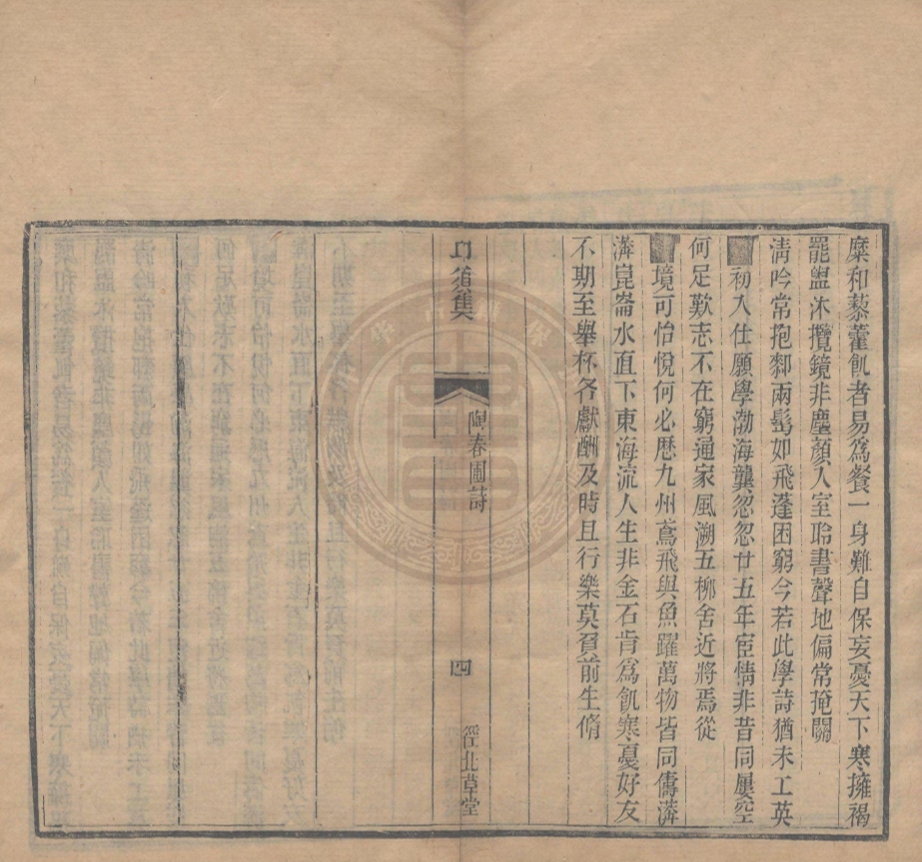 糜和藜藿飢者易爲餐一身難自保妄憂天下寒擁褐
罷盥沐攬鏡非塵顏入室聆書聲地偏常掩關
淸吟常抱鄰兩鬂如飛蓬困窮今若此學詩猶未工英
初入仕願學渤海龔忽忽廿五年宦情非昔同屢空
何足歎志不在窮通家風溯五柳舍近將焉從
境可怡悅何必歷九州鳶飛與魚躍萬物皆同儔濟
崑崙水直下東海流人生非金石肯爲飢寒憂好友
不期至舉杯各獻酬及時且行樂莫負前生脩
陶春圃詩
四
徑北草堂